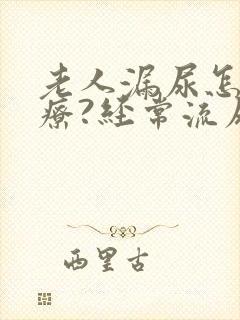 老人漏尿怎
療?经常流
西里古